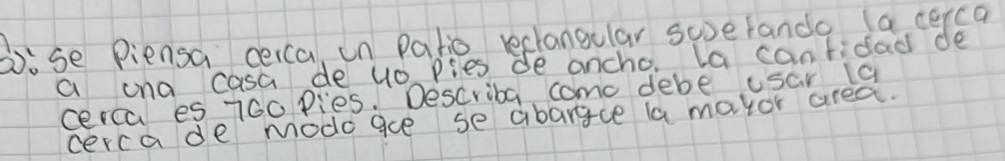 3): se Piensa cerca un Patio rectangular sujetando la cerca
a una casa de 40 Pies de ancho. La cantidad de
cerca es 160 Pies. Describa como debe usar la
cerca de modo que se abarque la mayor area.